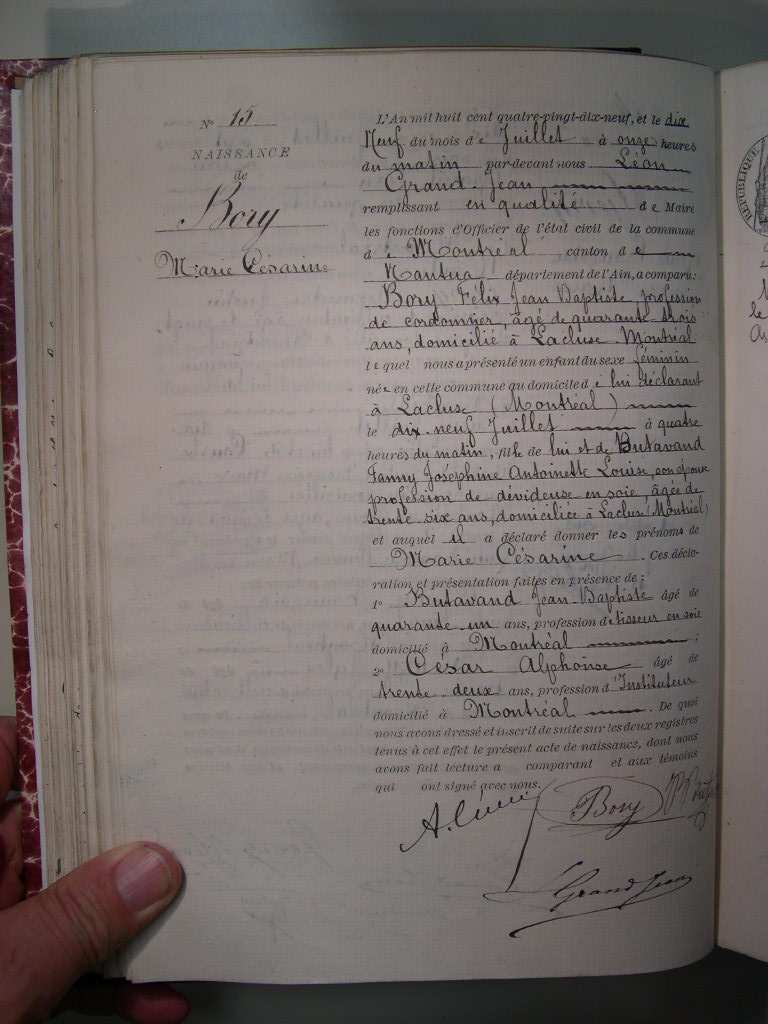 N° 15
NAISSANCE
de
Bory
Marie Césarine
L'An mil huit cent quatre-vingt-dix-neuf, et le dix
Neuf du mois de Juillet à onze heures
du matin par-devant nous Léon
Grand-Jean
remplissant en qualité de Maire
les fonctions d'Officier de l'état civil de la commune
de Montréal canton de
Nantua département de l'Ain, a comparu:
Bory Félix Jean Baptiste, profession
de cordonnier, âgé de quarante trois
ans, domicilié à Lacluse Montréal
lequel nous a présenté un enfant du sexe féminin
née en cette commune au domicile de lui déclarant
à Lacluse (Montréal)
le dix-neuf Juillet à quatre
heures du matin, fille de lui et de Butavand
Fanny Joséphine Antoinette Louise, son épouse
profession de dévideuse en soie, âgée de
trente six ans, domiciliée à Lacluse (Montréal)
et auquel il a déclaré donner les prénoms de
Marie Césarine. Ces décla-
ration et présentation faites en présence de:
1° Butavand Jean-Baptiste âgé de
quarante-un ans, profession de tisseur en soie
domicilié à Montréal;
2° César Alphonse âgé de
trente-deux ans, profession d'Instituteur
domicilié à Montréal. De quoi
nous avons dressé et inscrit de suite sur les deux registres
tenus à cet effet le présent acte de naissance, dont nous
avons fait lecture a comparant et aux témoins
qui ont signé avec nous.
Bory
Grand Jean
RÉPUBLIQUE
le